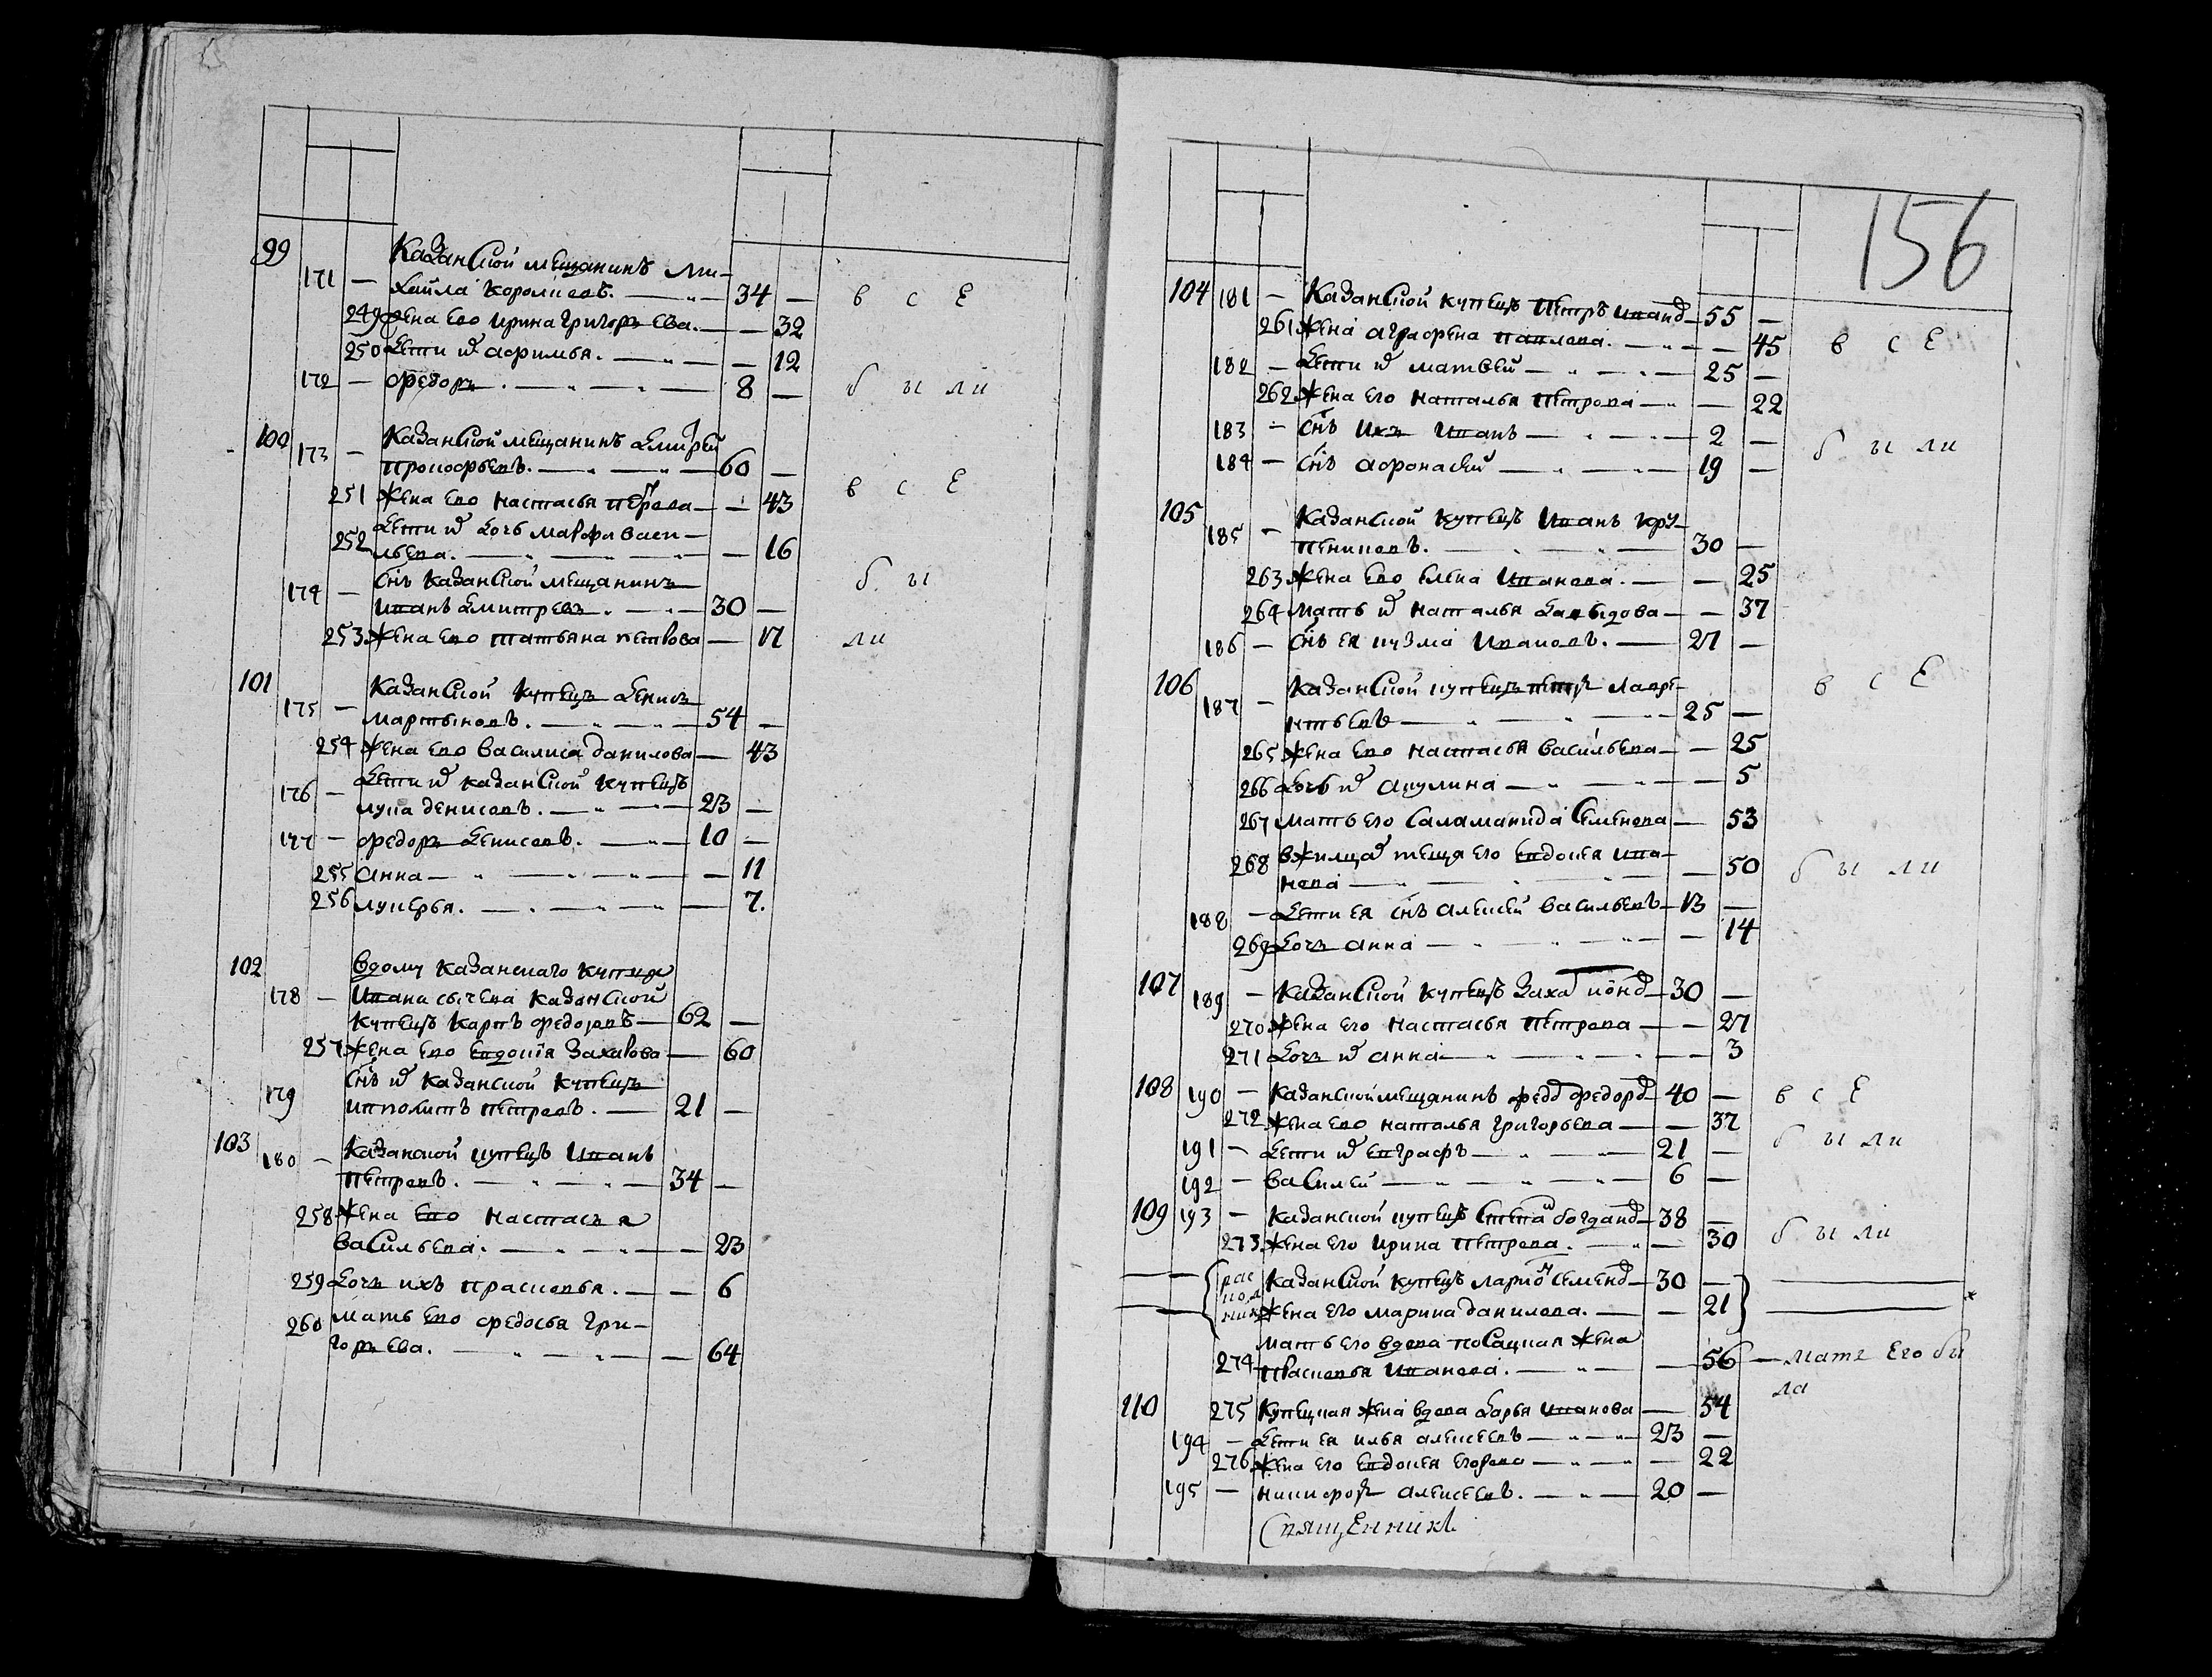 99
171 — Казанской мещанинъ Ми-
хаила Королковъ. — 34 — все
249 жена ево Ирина Григорьева. — — 32
250 Дети ѿ Афимья. — — 12
172 — Федоръ. — 8 — были
100 173 — Казанской мещанинъ Дмитрей
Прокофьевъ. — 60 —
251 жена ево Настасья Петрова — — 43 все
252 Дети ѿ дочь Марфа Васи-
льева. — — 16
174 — снъ казанской мещанинъ бы
Иванъ Дмитревъ. — 30 —
253 жена ево Татьяна Петрова — 17 ли
101
175 — Казанской купецъ Денисъ
Мартыновъ. — 54 —
254 жена ево Василиса Данилова — 43
176 — Дети ѿ казанской купецъ
Лука Денисовъ. — 23 —
177 — Федоръ Денисовъ. — 10 —
255 Анна — — 11
256 Лукерья. — — 7.
102 Вдому казанского купца
178 — Ивана Сычева казанской
купецъ Карпъ Федоровъ — 62 —
257 жена ево Евдокія Захарова — 60
179 снъ ѿ казанской купецъ
Ипполитъ Петровъ. — 21 —
103 180 — Казанской купецъ Иванъ
Петровъ. — 34 —
258 жена ево Настасья
Васильева. — — 23
259 дочь ихъ Прасковья. — — 6
260 мать ево Федосья Гри-
горьева. — — 64
156
104 181 — Казанской купецъ Петръ Иванов — 55 —
261 жена Аграфена Павлова. — — 45 все
182 — Дети ѿ Матвей — 25 —
262 жена его Наталья Петрова — — 22
183 — снъ ихъ Иванъ — 2 — были
184 — снъ Афонасей — 19 —
105
185 — Казанской купецъ Иванъ Кру-
пениковъ. — 30 —
263 жена ево Елена Иванова. — — 25
264 мать ѿ Наталья Давыдова — — 37
186 — снъ ея Кузма Ивановъ. — 27 —
106 187 — Казанской купецъ Петръ Лавре- все
нтьевъ — 25 —
265 жена ево Настасья Васильева — — 25
266 дочь ѿ Акулина — — 5
267 мать его Саламанида Семенова — 53
268 теща его Евдокея Ива-
нова — — 50 были
188 — Дети ея снъ Алексей Васильевъ — 13 —
269 дочь Анна — — 14
107 189 — Казанской купецъ Заха — 30 —
270 жена его Настасья Петрова — — 27
271 дочь ѿ Анна — — 3
108 190 — Казанской мещанинъ Федо Федоро — 40 — все
272 жена ево Наталья Григорьева — — 37
191 — Дети ѿ Евграфъ — 21 — были
192 — Василей — 6 —
109 193 — Казанской купецъ Степа Богдано — 38 —
273 жена его Ирина Петрова. — — 30 были
Казанской купецъ Ларио Семено — 30 —
жена его Марина Данилова. — — 21
274 мать его вдова посацкая жена
Прасковья Иванова. — — 56 — мать его бы
ла
110 275 Купецкая жена вдова Дарья Иванова — 54
194 — Дети ея Илья Алексеевъ — 23 —
276 жена его Евдокея Егорова — — 22
195 — Никифоръ Алексеевъ. — 20 —
Священникъ